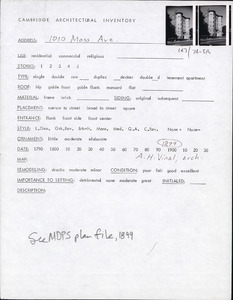 CAMBRIDGE ARCHITECTURAL INVENTORY
ADDRESS: 1010 Mass Ave
USE: residential commercial religious
STORIES: 1 2 3 4 5
TYPE: single double row duplex decker double_d tenement apartment
ROOF: hip gable front gable flank mansard flat
MATERIAL: frame brick SIDING: original subsequent
PLACEMENT: narrow to street broad to street square
ENTRANCE: flank front side front center
ORNAMENT: little moderate elaborate
DATE: 1790 1800 10 20 30 40 50 60 70 80 90 1900 10 20 30
1899
MAP: A.H. Vinal, arch.
REMODELING: drastic moderate minor CONDITION: poor fair good excellent
IMPORTANCE TO SETTING: detrimental none moderate great INITIALED:
DESCRIPTION:
See MDPS plan file, 1899